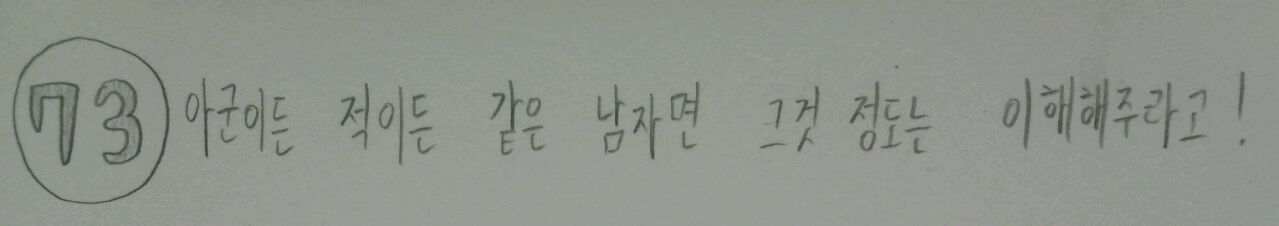 73 아군이든 적이든 같은 남자면 그것 정도는 이해해주라고!